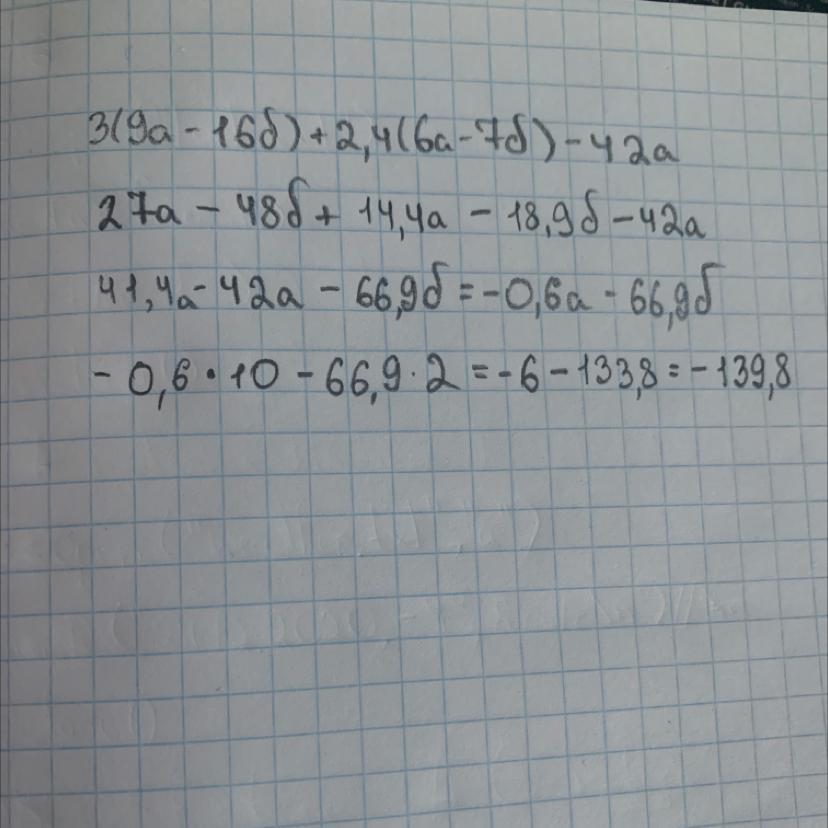 3(9а - 16б) + 2,4(6а - 7б) - 42а
27а - 48б + 14,4а - 18,9б - 42а
41,4а - 42а - 66,9б = -0,6а - 66,9б
- 0,6 · 10 - 66,9 · 2 = -6 - 133,8 = -139,8